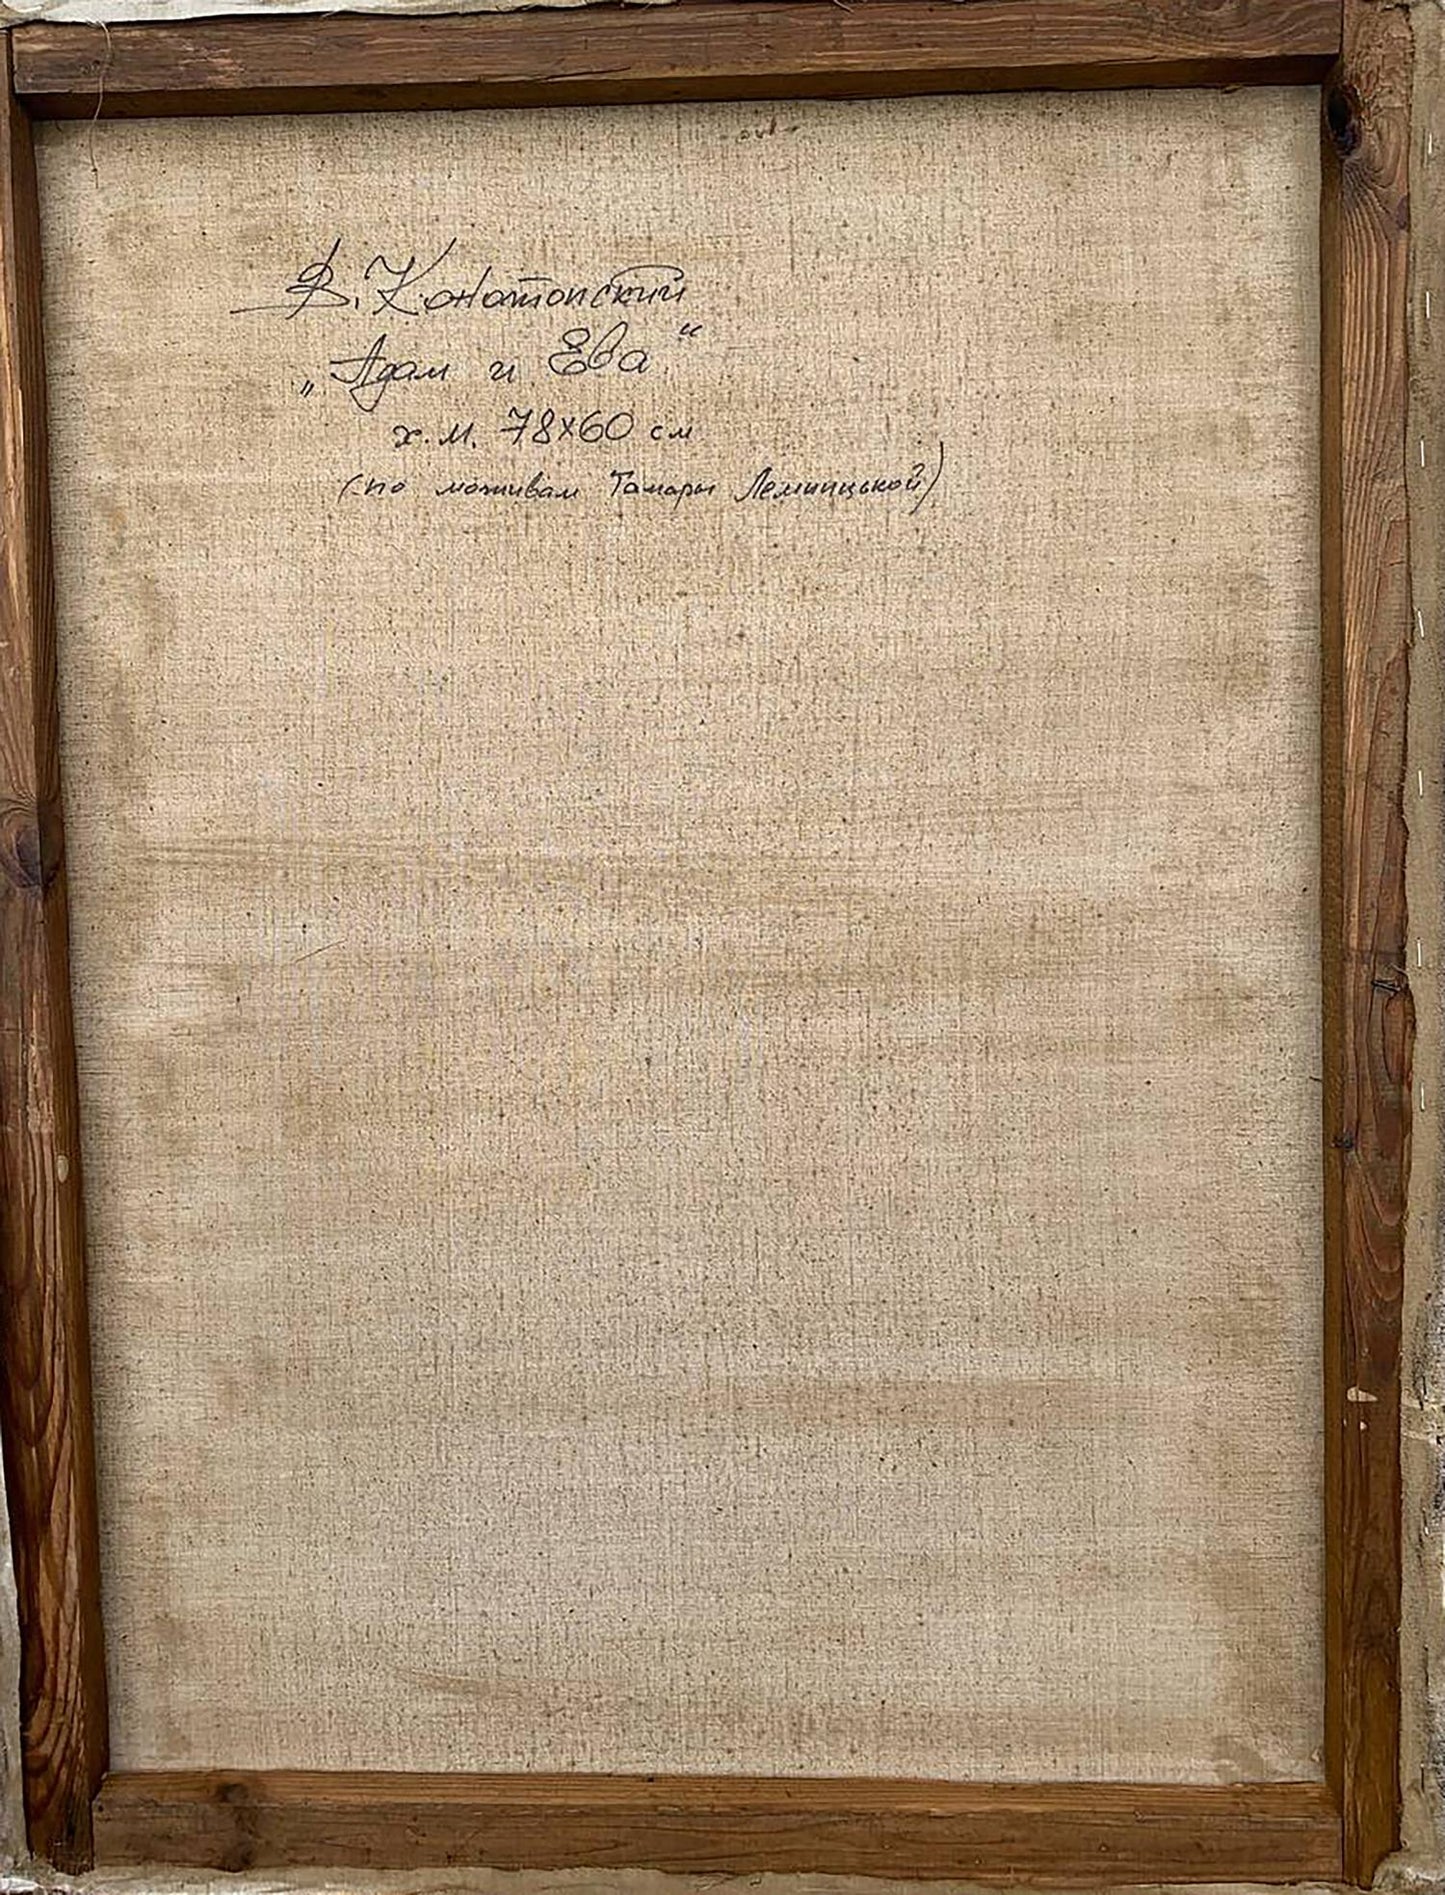 В. Конотопский
„Адам и Ева"
х.м. 78х60 см
(по мотивам Тамары Лемпицькой)